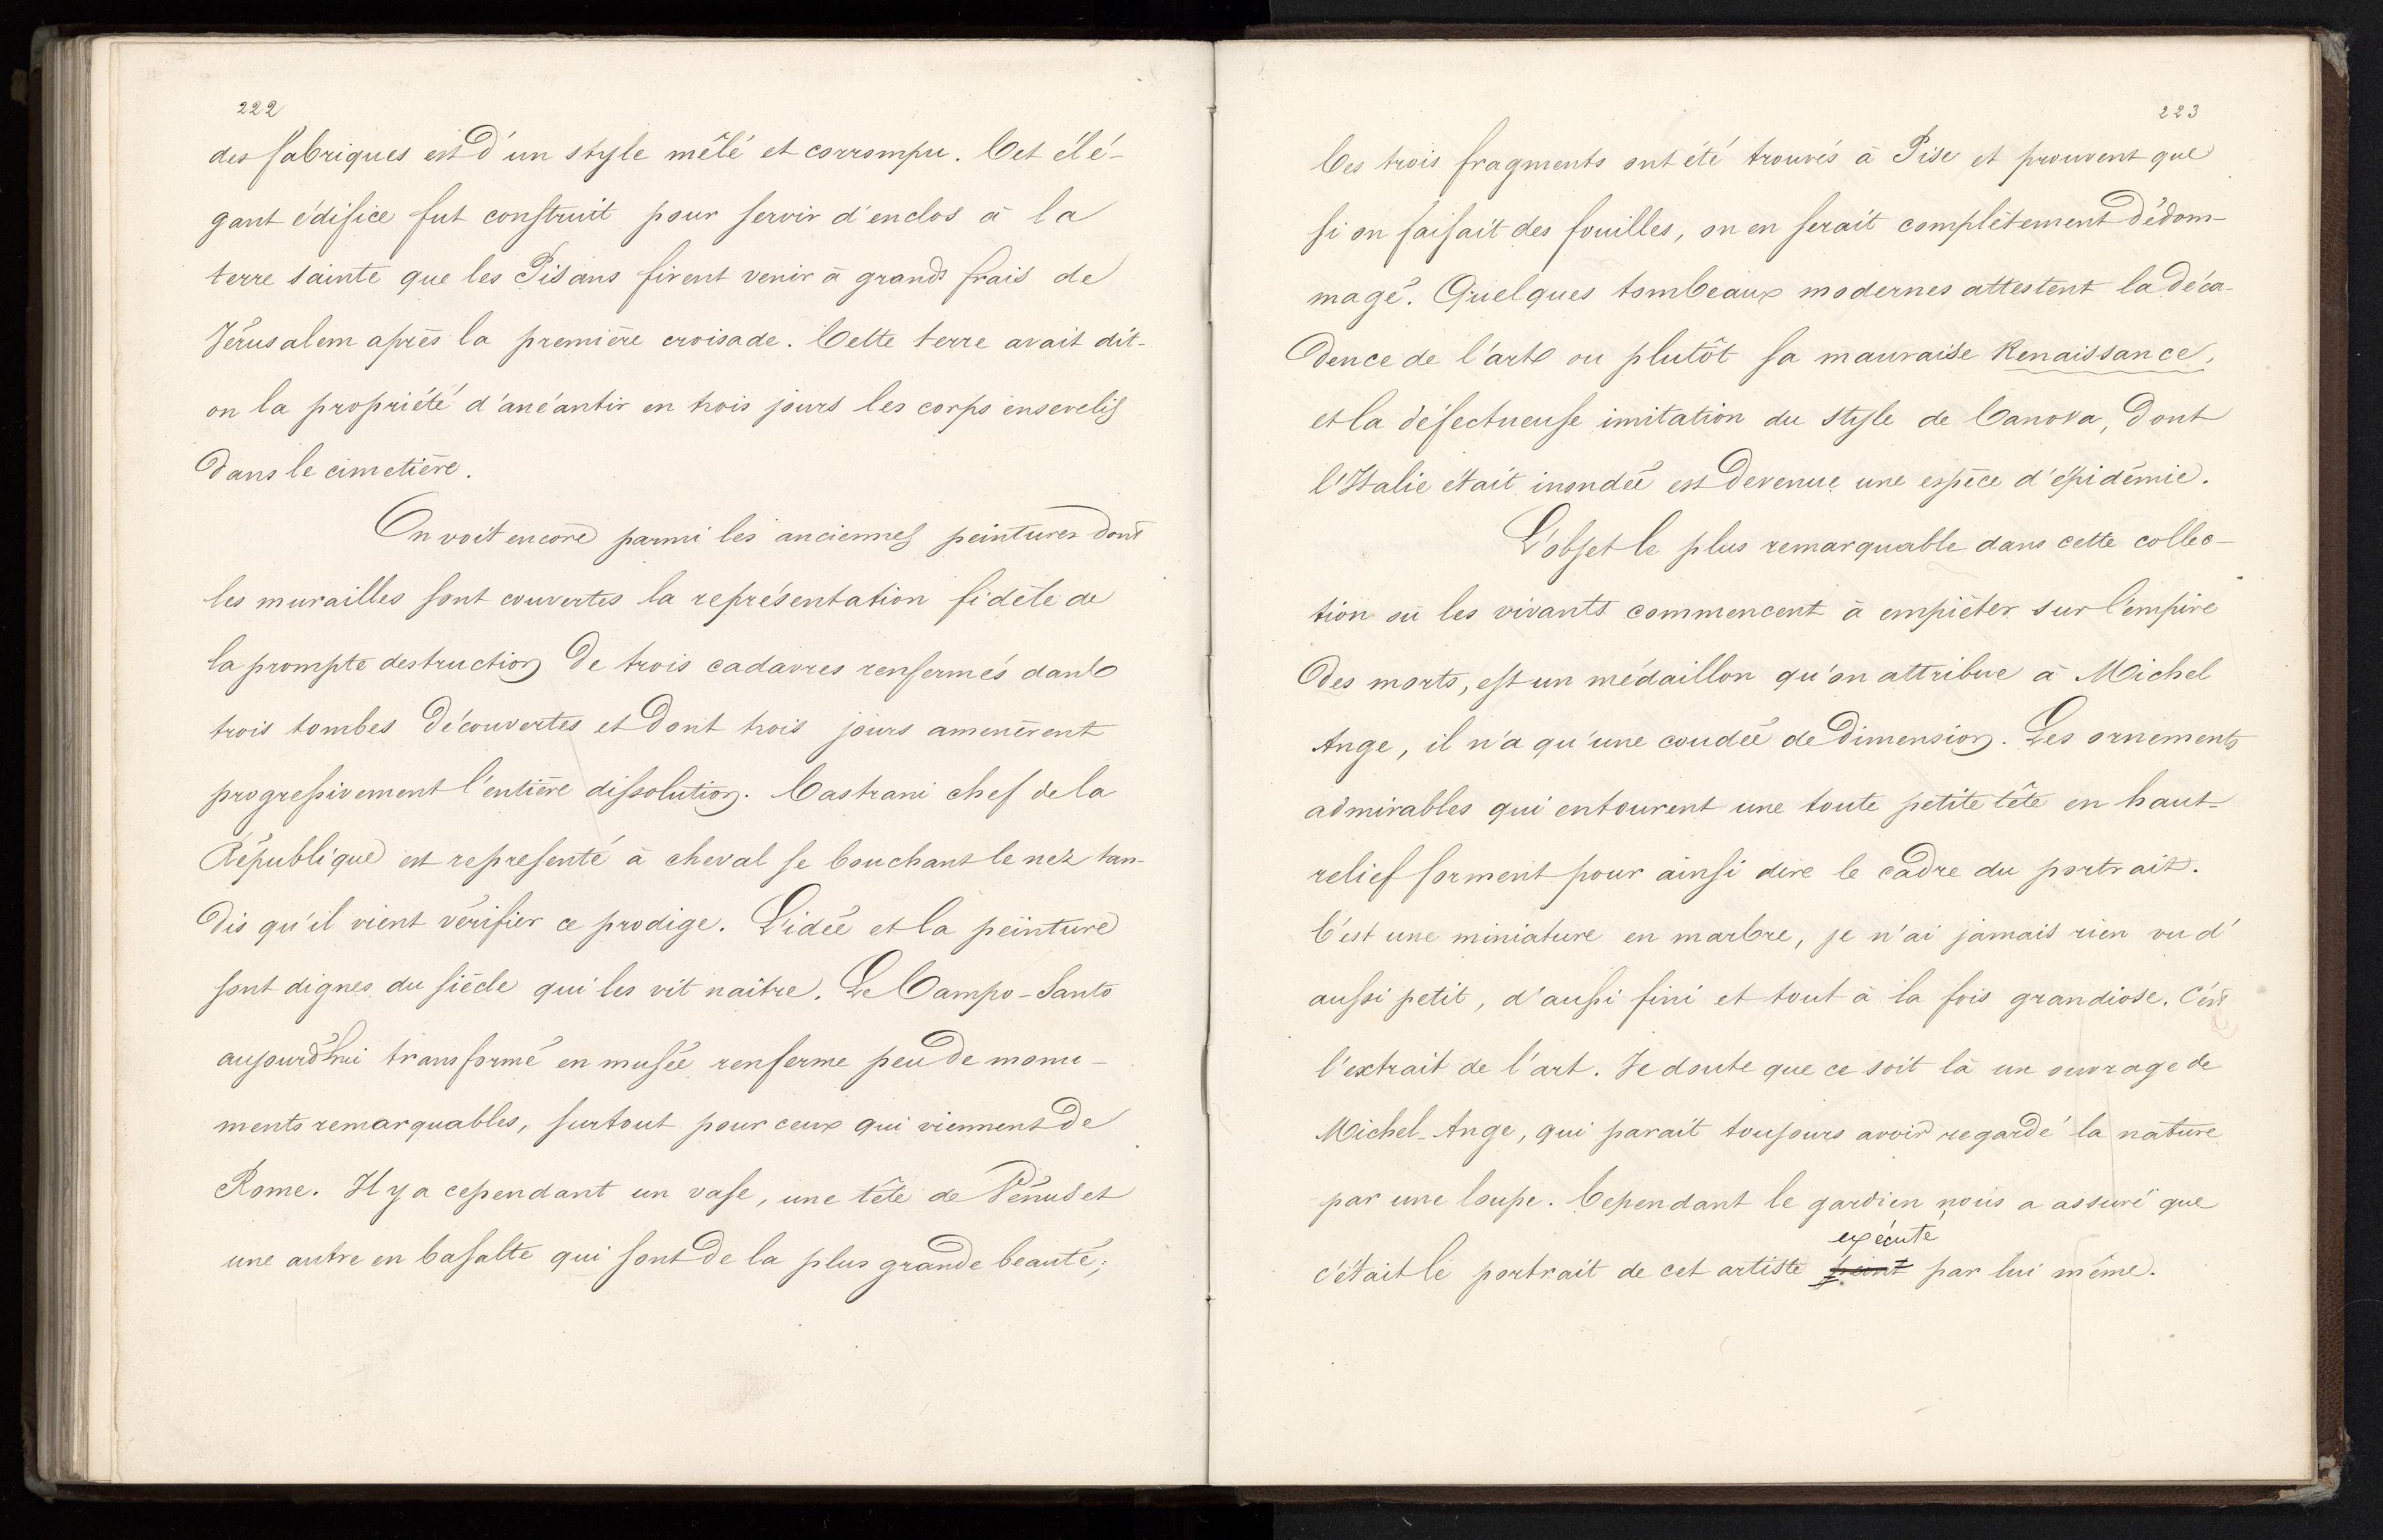 222
des fabriques est d'un style mêlé et corrompu. Cet élé-
gant édifice fut construit pour servir d'enclos à la
terre sainte que les Pisans firent venir à grands frais de
Jérusalem après la première croisade. Cette terre avait dit-
on la propriété d'anéantir en trois jours les corps ensevelis
dans le cimetière.
On voit encore parmi les anciennes peintures dont
les murailles sont couvertes la représentation fidèle de
la prompte destruction de trois cadavres renfermés dans
trois tombes découvertes et dont trois jours amenèrent
progressivement l'entière dissolution. Castrani chef de la
République est representé à cheval se bouchant le nez tan-
dis qu'il vient vérifier ce prodige. L'idée et la peinture
sont dignes du siècle qui les vit naître. Le Campo-Santo
aujourd'hui transformé en musée renferme peu de monu-
ments remarquables, surtout pour ceux qui viennent de
Rome. Il y a cependant un vase, une tête de Vénus et
une autre en basalte qui sont de la plus grande beauté;
223
Ces trois fragments ont été trouvés à Pise et prouvent que
si on faisait des fouilles, on en serait complètement dédom-
magé. Quelques tombeaux modernes attestent la déca-
dence de l'art ou plutôt sa mauvaise Renaissance,
et la défectueuse imitation du style de Canova, dont
l'Italie était inondée est devenue une espèce d'épidémie.
L'objet le plus remarquable dans cette collec-
tion où les vivants commencent à empiéter sur l'empire
des morts, est un médaillon qu'on attribue à Michel
Ange, il n'a qu'une coudée de dimension. Les ornements
admirables qui entourent une toute petite tête en haut-
relief forment pour ainsi dire le cadre du portrait.
C'est une miniature en marbre, je n'ai jamais rien vu d'
aussi petit, d'aussi fini et tout à la fois grandiose. C'est
l'extrait de l'art. Je doute que ce soit là un ouvrage de
Michel-Ange, qui paraît toujours avoir regardé la nature
par une loupe. Cependant le gardien nous a assuré que
exécuté
c'était le portrait de cet artiste peint par lui même.